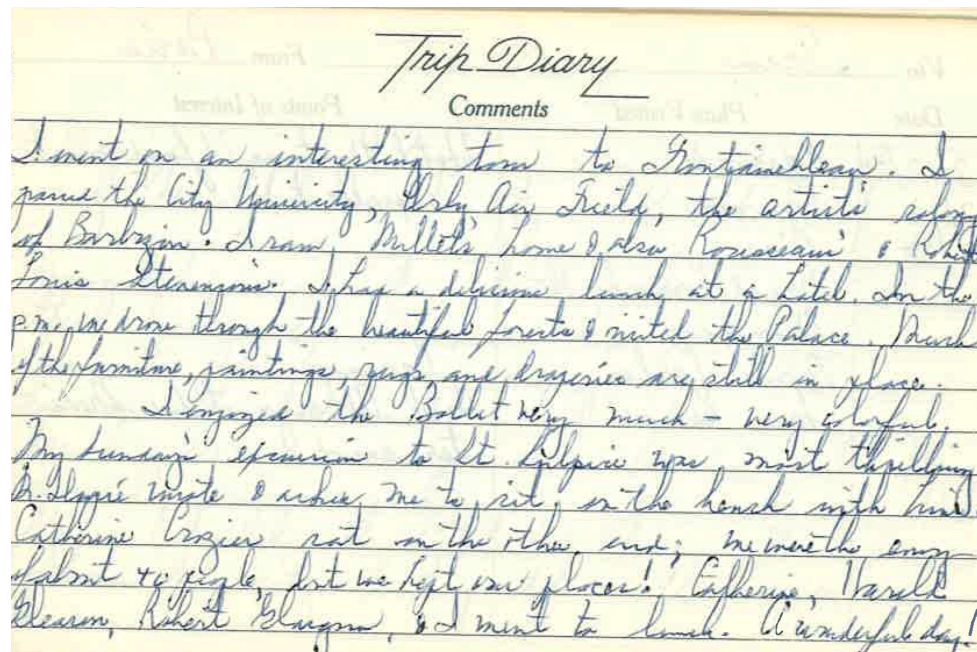 Trip Diary
Comments
I went on an interesting tour to Fontainebleau. I
passed the City University, Orly Air Field, the artists' colony
of Barbizon. I saw Millet's home & also Rousseau's & Robert
Louis Stevenson's. I had a delicious lunch at a hotel. In the
p.m. we drove through the beautiful forests & visited the Palace. Much
of the furniture, paintings, rugs and draperies are still in place.
I enjoyed the Ballet very much - very colorful.
My Sunday's excursion to St. Sulpice was most thrilling
Dr. Dupré wrote & asked me to sit on the bench with him.
Catherine Crozier sat on the other end; we were the envy
of about 40 people, but we kept our places! Catherine, Harold
Gleason, Robert & I went to lunch. A wonderful day!
Via
From Paris
Date
Place Visited
Points of Interest